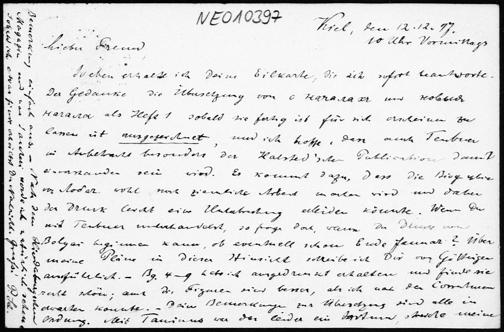 NEO10397
Kiel, den 12.12.97.
10 Uhr Vormittags
Lieber Freund
Soeben erhalte ich Deine Eilkarte, die ich sofort beantworte.
Der Gedanke die Übersetzung von О началахъ und новыя
начала als Heft 1 sobald sie fertig ist für sich erscheinen zu
lassen ist ausgezeichnet, und ich hoffe, dass auch Teubner
in Anbetracht besonders der Halsted'schen Publication damit
einverstanden sein wird. Es kommt dazu, dass die Biographie
von noch ziemliche Arbeit machen wird und daher
der Druck leicht eine Unterbrechung erleiden könnte. Wenn Du
mit Teubner unterhandelst, so frage doch, wann der Druck von
Bolyai beginnen kann, ob eventuell schon Ende Januar? Über
meine Pläne in dieser Hinsicht schreibe ich Dir von Göttingen
ausführlich. – ausgedruckt erhalten und finde sie
recht schön; auch die Figuren sind besser, als ich nach den Correcturen
erwarten konnte. – Deine Bemerkungen zur Übersetzung sind alle in
Ordnung. Mit war das leider ein Irrthum, meine